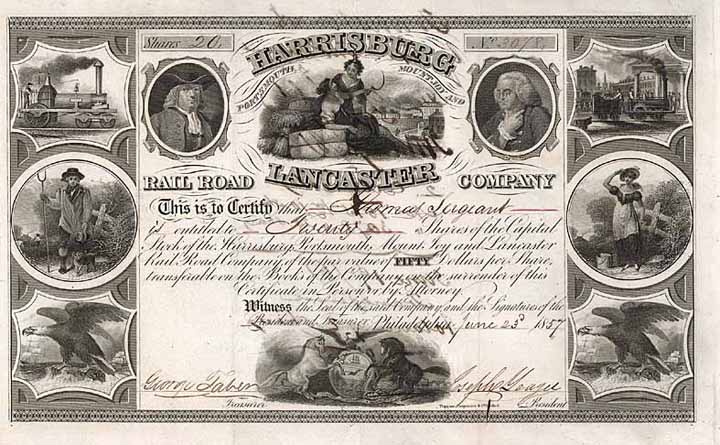 Shares 20
No.
HARRISBURG
PORTSMOUTH, MOUNTJOY AND
LANCASTER
RAIL ROAD COMPANY
This is to Certify that Thomas Sergeant
is entitled to Twenty Shares of the Capital
Stock of the Harrisburg, Portsmouth, Mount Joy and Lancaster
Rail Road Company, of the par value of FIFTY Dollars per Share,
transferable on the Books of the Company on the surrender of this
Certificate in Person or by Attorney
Witness the Seal of the said Company and the Signatures of the
President and Treasurer, Philadelphia June 23d 1857
George Taber
Joseph Yeager
Treasurer
President